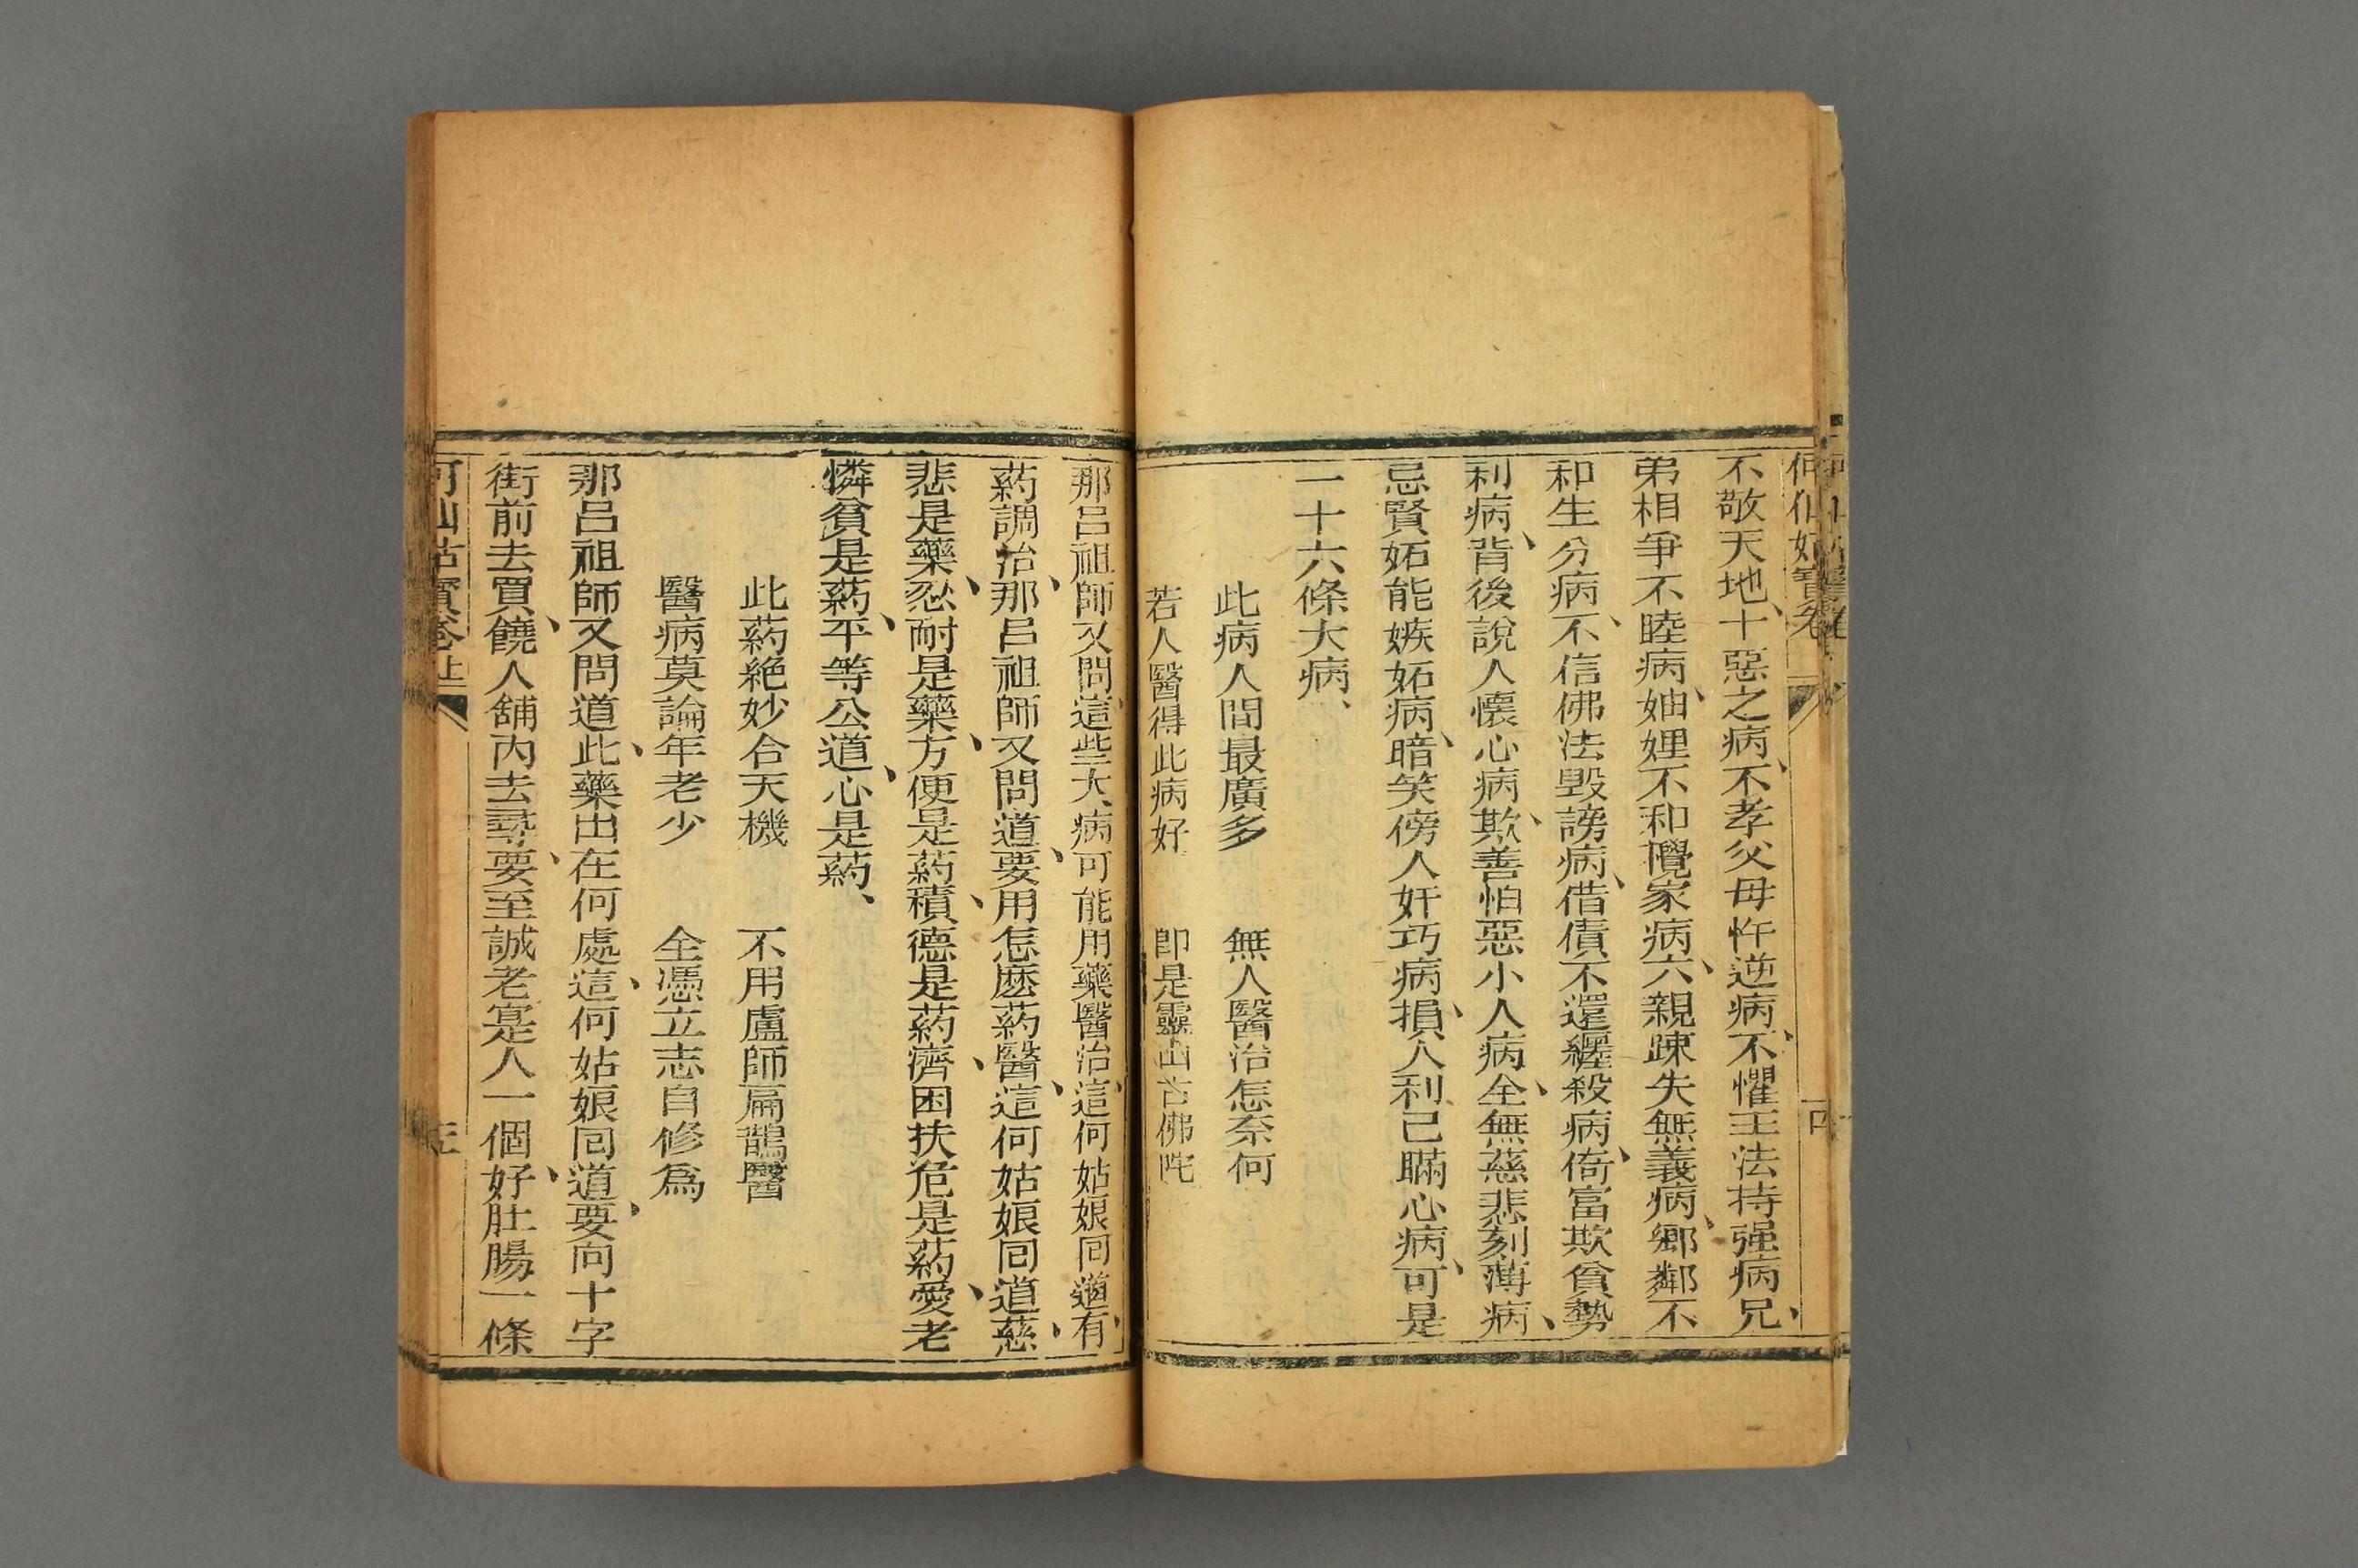 何仙姑寶卷
不敬天地、十惡之病、不孝父母忤逆病、不懼王法持强病、兄
弟相爭不睦病、妯娌不和攪家病、六親踈失無義病、鄉鄰不
和生分病、不信佛法毀謗病、借債不還纒殺病、倚富欺貧勢
利病、背後說人懷心病、欺善怕惡小人病、全無慈悲刻薄病、
忌賢妬能嫉妬病、暗笑傍人奸巧病、損人利己瞞心病、可是
一十六條大病、
此病人間最廣多　無人醫治怎奈何
若人醫得此病好　即是靈山古佛陀
那呂祖師又問、這些大病可能用藥醫治、這何姑娘囘道、有
葯調治、那呂祖師又問道、要用怎麽葯醫、這何姑娘囘道、慈
悲是藥、忍耐是藥、方便是葯、積德是葯、濟困扶危是葯、愛老
憐貧是葯、平等公道、心是葯、
此葯絶妙合天機　不用盧師扁鵲醫
醫病莫論年老少　全憑立志自修爲
那呂祖師又問道、此藥出在何處、這何姑娘囘道、要向十字
街前去買、饒人舖內去尋、要至誠老寔人一個、好肚腸一條
何仙姑寶卷上